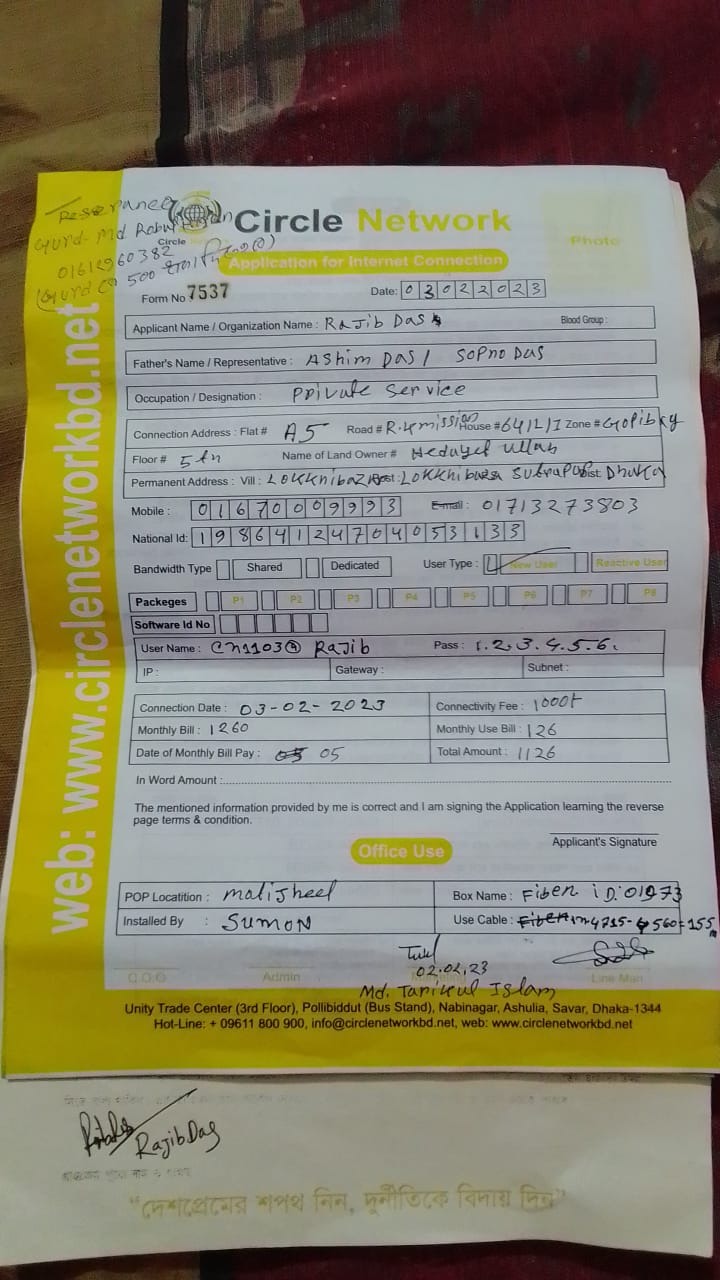 Gurd- Md
01612960382
500
Circle
Circle Network
Photo
Application for Internet Connection
Form No 7537
Date: 03022023
Applicant Name / Organization Name : Rajib Das
Blood Group :
Father's Name / Representative : Ashim Das / Sopno Das
Occupation / Designation : Private Service
Connection Address : Flat # A5 Road # R.K mission House # 64/1/1 Zone #
Floor # 5th Name of Land Owner # Hedayet Ullah
Permanent Address : Vill : Lokkhibazar Post : Lokkhibazar Sutrapur Dist Dhaka
Mobile : 01670009993 E-mail : 01713273803
National Id: 19864124704053133
Bandwidth Type Shared Dedicated User Type : New User Reactive User
Packeges P1 P2 P3 P4 P5 P6 P7 P8
Software Id No
User Name : Rajib Pass : 1.2.3.4.5.6.
IP : Gateway : Subnet :
Connection Date : 03-02-2023 Connectivity Fee : 1000
Monthly Bill : 1260 Monthly Use Bill : 126
Date of Monthly Bill Pay : 05 Total Amount : 1126
In Word Amount :
The mentioned information provided by me is correct and I am signing the Application learning the reverse
page terms & condition.
Applicant's Signature
Office Use
POP Locatition : motijheel Box Name : Fiber iD:
Installed By : Sumon Use Cable :
C.O.O Admin Line Man
Md. Tarikul Islam
Unity Trade Center (3rd Floor), Pollibiddut (Bus Stand), Nabinagar, Ashulia, Savar, Dhaka-1344
Hot-Line: + 09611 800 900, info@circlenetworkbd.net, web: www.circlenetworkbd.net
web: www.circlenetworkbd.net
Rajib Das
“দেশপ্রেমের শপথ নিন, দুর্নীতিকে বিদায় দিন”